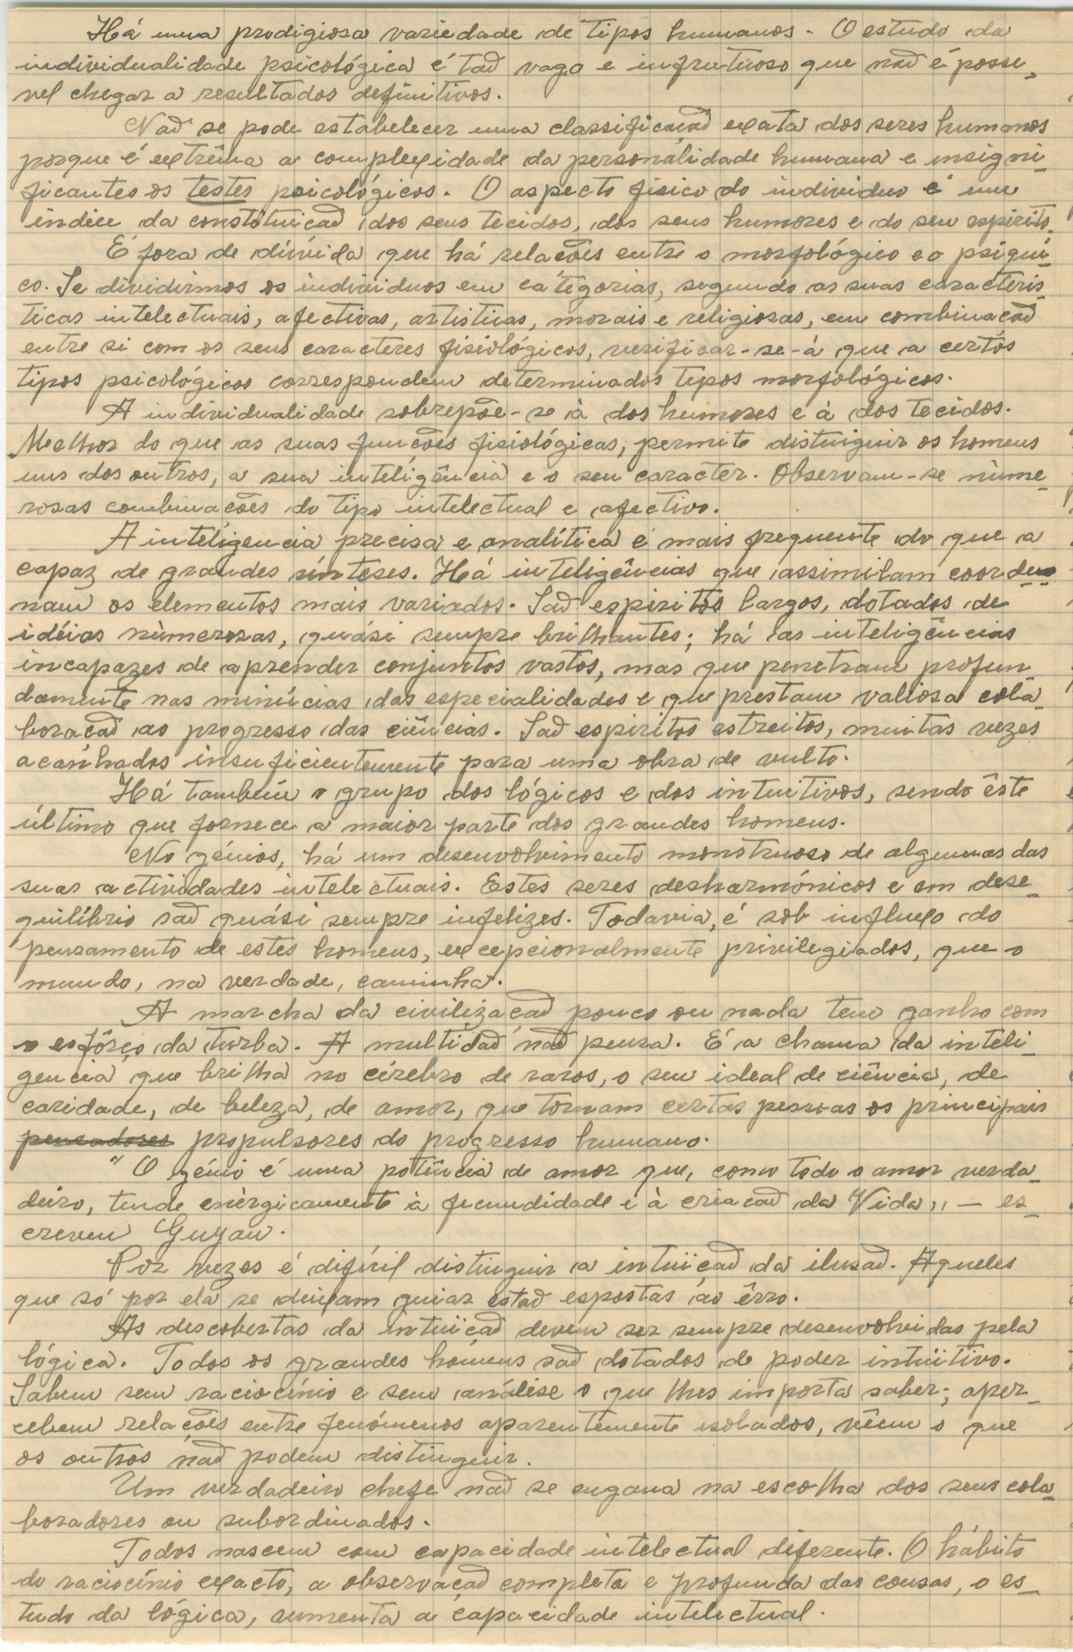 Há uma prodigiosa variedade de tipos humanos. O estudo da
individualidade psicológica é tão vago e infrutuoso que não é possi-
vel chegar a resultados definitivos.
Não se pode estabelecer uma classificação exata dos seres humanos
porque é extrêma a complexidade da personalidade humana e insigni-
ficantes os testes psicológicos. O aspecto físico do individuo é um
índice da constituição dos seus tecidos, dos seus humores e do seu espírito.
É fora de dúvida que há relações entre o morfológico e o psíqui-
co. Se dividirmos os individuos em categorias, segundo as suas caracterís-
ticas intelectuais, afectivas, artísticas, morais e religiosas, em combinação
entre si com os seus caracteres fisiológicos, verificar-se-á que a certos
tipos psicológicos correspondem determinados tipos morfológicos.
A individualidade sobrepõe-se à dos humores e à dos tecidos.
Melhor do que as suas funções fisiológicas, permite distinguir os homens
uns dos outros, a sua inteligência e o seu caracter. Observam-se nùme-
rosas combinações do tipo intelectual e afectivo.
A inteligencia precisa e analítica é mais frequente do que a
capaz de grandes sínteses. Há inteligências que assimilam coorde-
nam os elementos mais variados. São espiritos largos, dotados de
idéias nùmerosas, quási sempre brilhantes; há as inteligências
incapazes de aprender conjuntos vastos, mas que penetram profun-
damente nas minúcias das especialidades e que prestam valiosa cola-
boração ao progresso das ciências. São espiritos estreitos, muitas vezes
acanhados insuficientemente para uma obra de vulto.
Há também o grupo dos lógicos e dos intuitivos, sendo êste
último que fornece a maior parte dos grandes homens.
No génios, há um desenvolvimento monstruoso de algumas das
suas actividades intelectuais. Estes seres desharmónicos e em dese-
quilíbrio são quási sempre infelizes. Todavia, é sob influxo do
pensamento de estes homens, excepcionalmente privilegiados, que o
mundo, na verdade, caminha.
A marcha da civilização pouco ou nada tem ganho com
o esfôrço da turba. A multidão não pensa. É a chama da inteli-
gencia que brilha no cérebro de raros, o seu ideal de ciência, de
caridade, de beleza, de amor, que tornam certas pessoas os principais
pensadores propulsores do progresso humano.
"O génio é uma potência de amor que, como todo o amor verda-
deiro, tende enèrgicamente à fecundidade e à criação da Vida" — es-
creveu Guyau.
Por vezes é difícil distinguir a intuïção da ilusão. Aqueles
que só por ela se deixam guiar estão espostas ao êrro.
As descobertas da intuïção devem ser sempre desenvolvidas pela
lógica. Todos os grandes homens são dotados de poder intuïtivo.
Sabem sem raciocínio e sem análise o que lhes importa saber; aper-
cebem relações entre fenómenos aparentemente isolados, vêem o que
os outros não podem distinguir.
Um verdadeiro chefe não se engana na escolha dos seus cola-
boradores ou subordinados.
Todos nascem com capacidade intelectual diferente. O hábito
do raciocínio exacto, a observação completa e profunda das cousas, o es-
tudo da lógica, aumenta a capacidade intelectual.